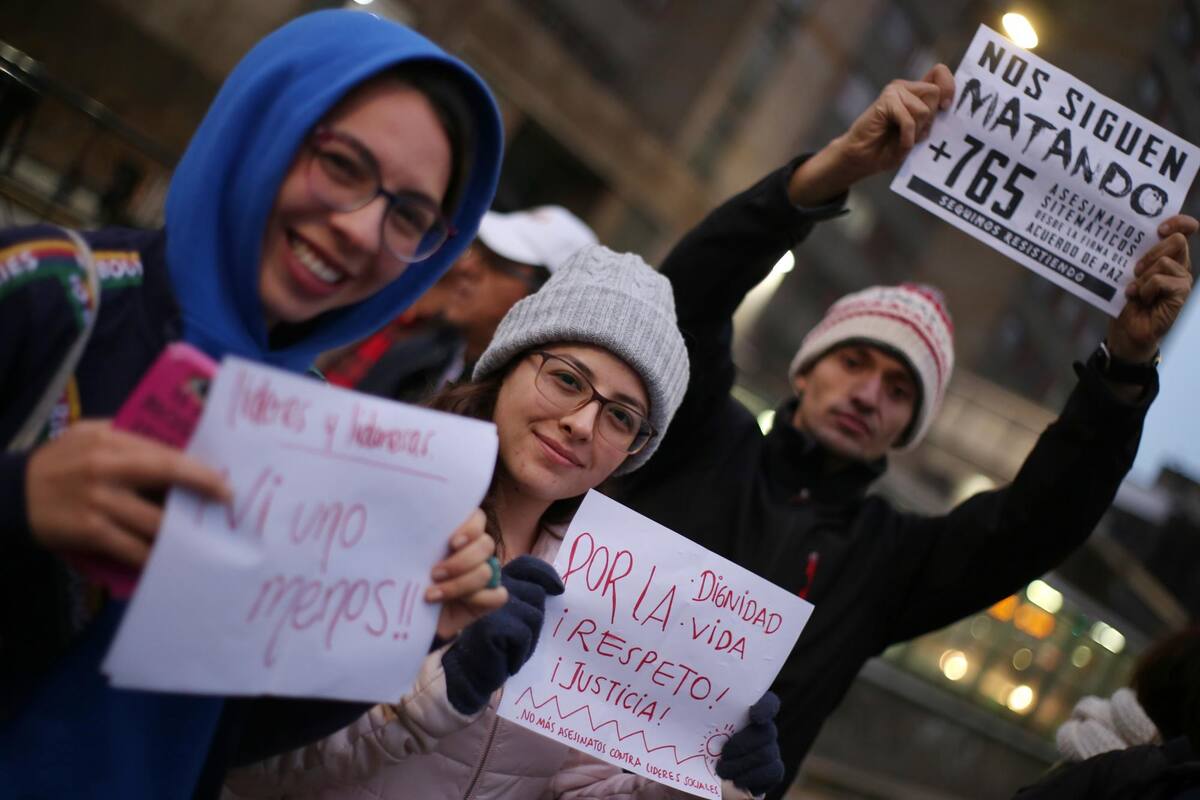 líderes y lideresas
Ni uno
menos!!
POR LA
• DIGNIDAD
• VIDA
¡RESPETO!
¡JUSTICIA!
NO MÁS ASESINATOS CONTRA LIDERES SOCIALES.
NOS SIGUEN
MATANDO
+765
ASESINATOS
SITEMÁTICOS
DESDE LA FIRMA DEL
ACUERDO DE PAZ
SEGUIMOS RESISTIENDO